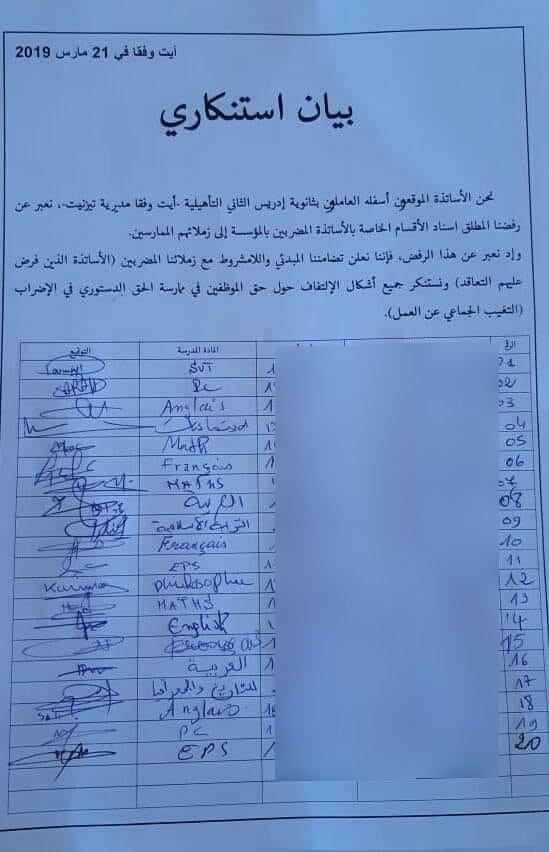 أيت وفقا في 21 مارس 2019
بيان استنكاري
نحن الأساتذة الموقعون أسفله العاملون بثانوية إدريس الثاني التأهيلية -أيت وفقا مديرية تيزنيت-، نعبر عن
رفضنا المطلق اسناد الأقسام الخاصة بالأساتذة المضربين بالمؤسسة إلى زملائهم الممارسين.
وإد نعبر عن هذا الرفض، فإننا نعلن تضامننا المبدئي واللامشروط مع زملائنا المضربين (الأساتذة الذين فرض
عليهم التعاقد) ونستنكر جميع أشكال الإلتفاف حول حق الموظفين في ممارسة الحق الدستوري في الإضراب
(التغيب الجماعي عن العمل).
الرقم المادة المدرسة التوقيع
01 SVT
02 Pc
03 Anglais
04
05 Math
06 Français
07 MATHS
08 العربية
09 التربية الإسلامية
10 Français
11 EPS
12 philosophie
13 MATHS
14 English
15
16 العربية
17 التاريخ والجغرافيا
18 Anglais
19 PC
20 EPS